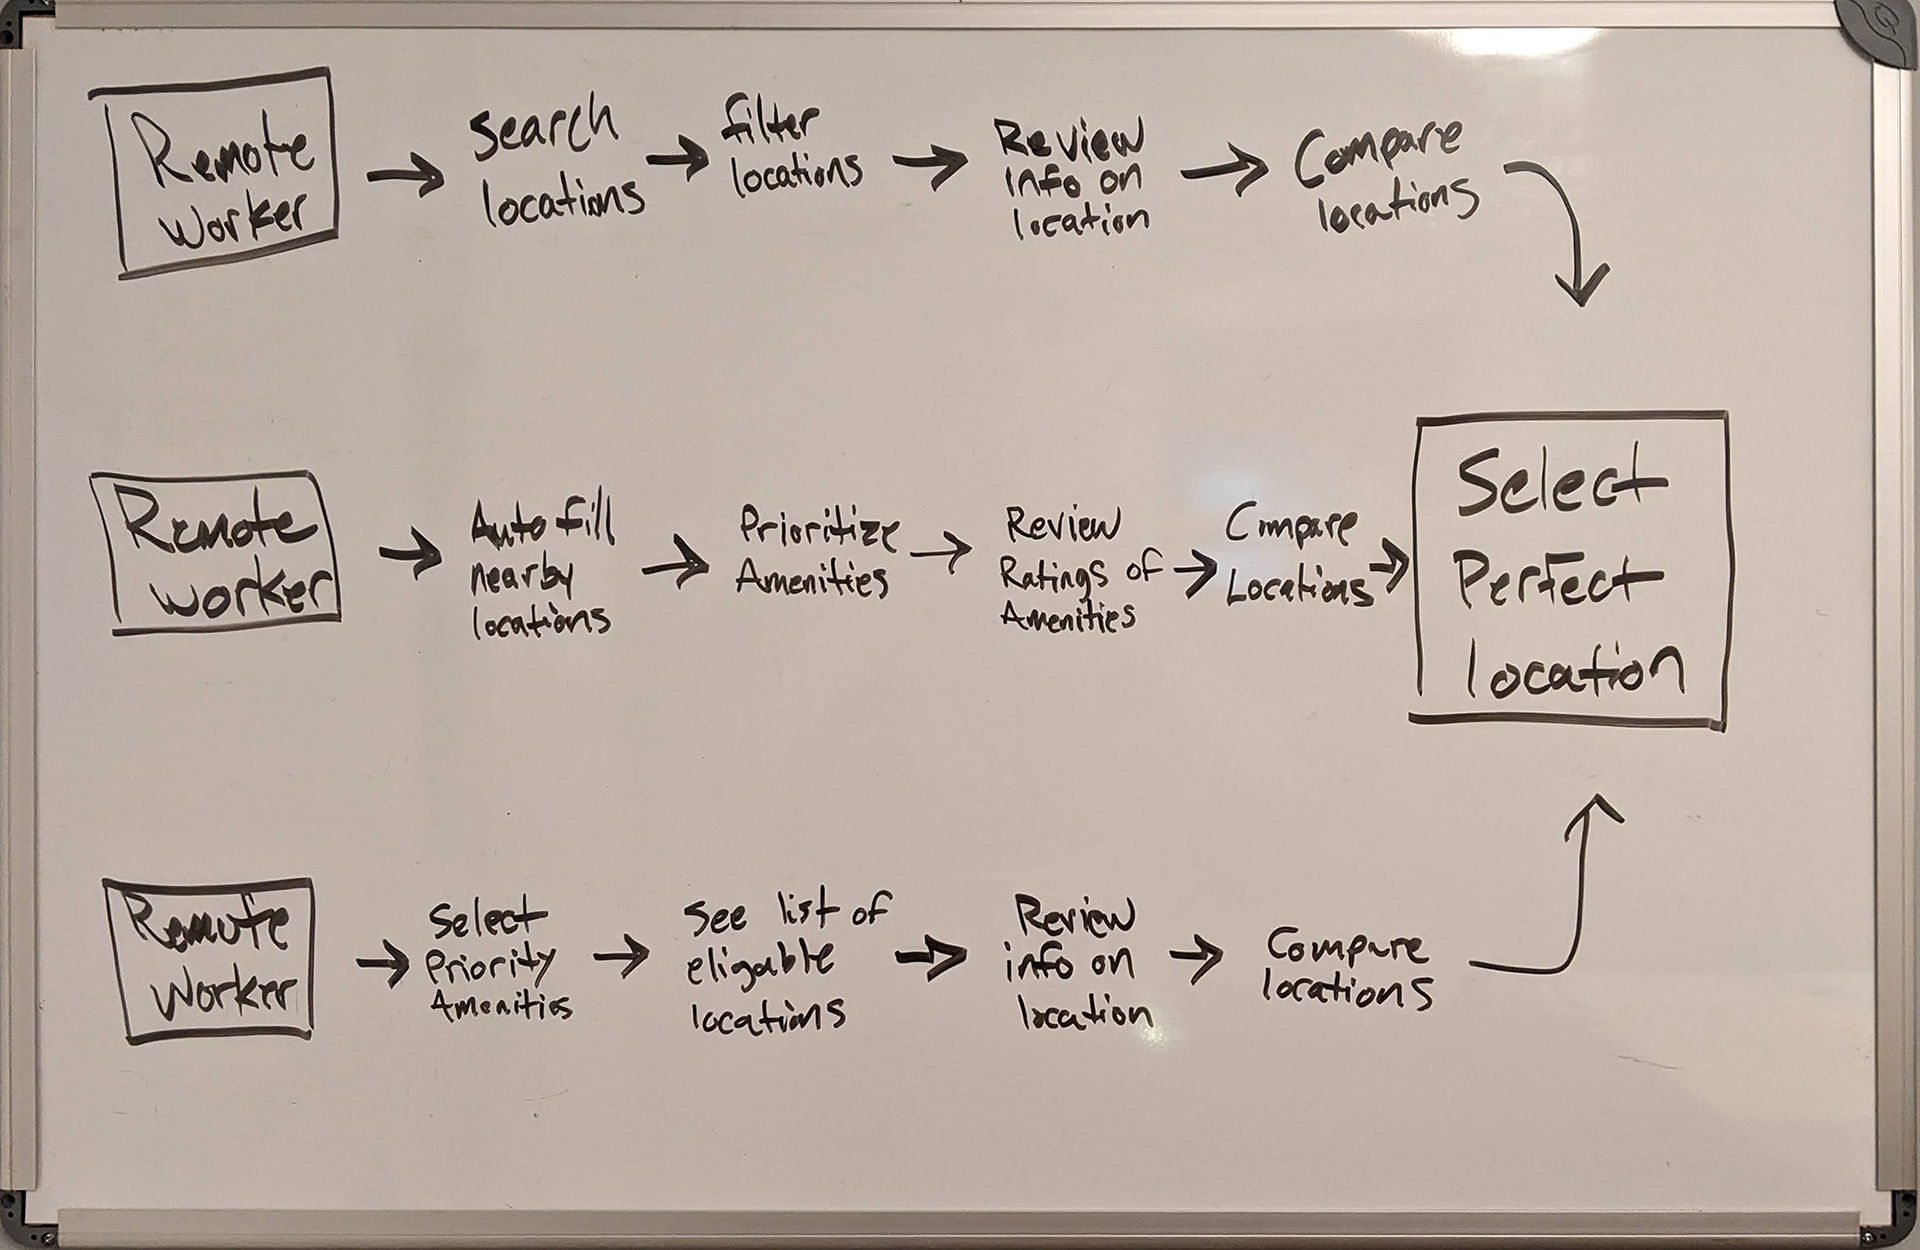 Remote
Worker
Search
locations
filter
locations
Review
info on
location
Compare
locations
Remote
Worker
Auto fill
nearby
locations
Prioritize
Amenities
Review
Ratings of
Amenities
Compare
Locations
Select
Perfect
location
Remote
Worker
Select
Priority
Amenities
See list of
eligable
locations
Review
info on
location
Compare
locations